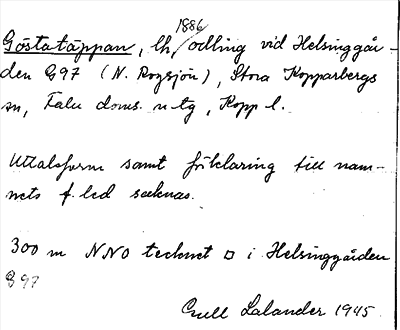 1886
Göstatäppan, lh/odling vid Helsinggår-
den G97 (N. Rogsjön), Stora Kopparbergs
sn, Falu doms. n tg, Kopp l.
Uttalsform samt förklaring till nam-
nets f. led saknas.
300 m NNO tecknet □ i Helsinggården
G97
Gull Lalander 1945.